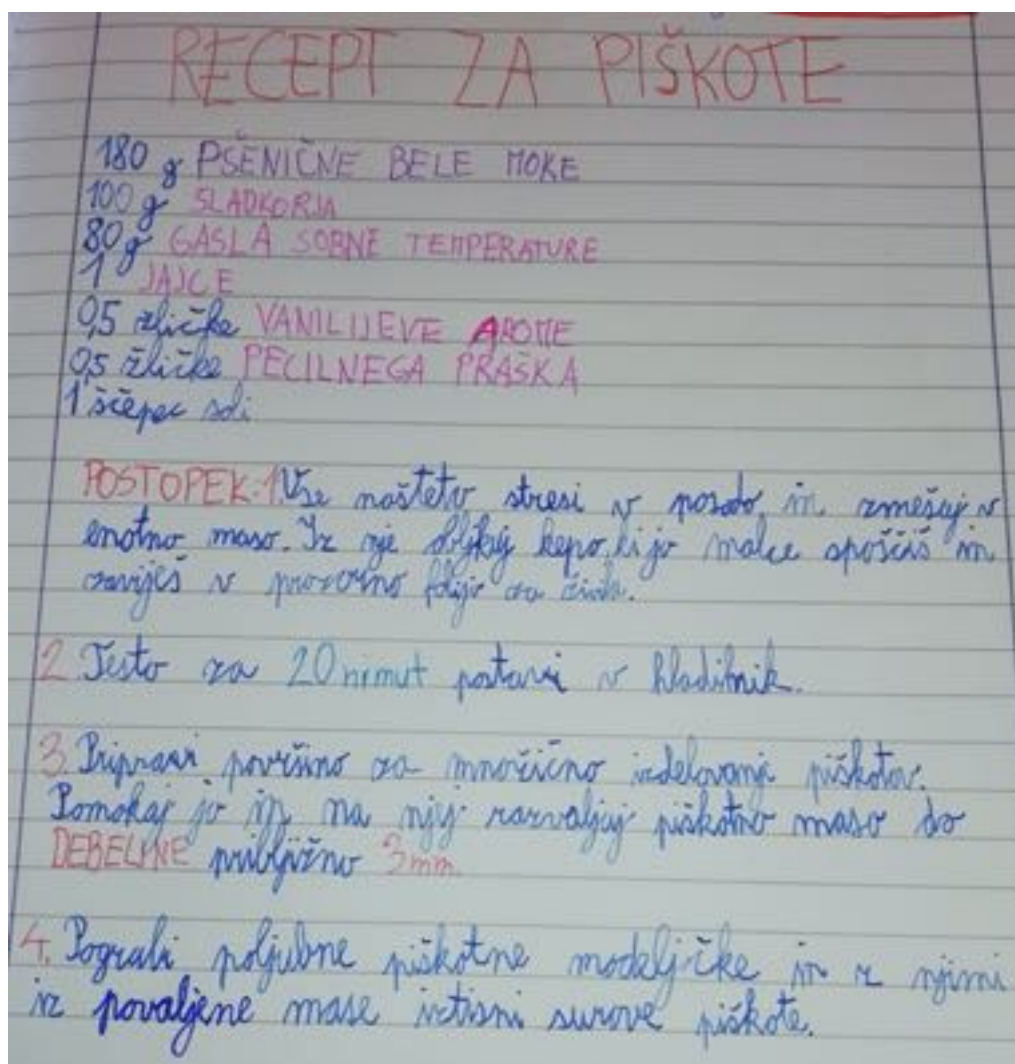 RECEPT ZA PIŠKOTE
180 g PŠENIČNE BELE MOKE
100 g SLADKORJA
80 g GASLA SOBNE TEMPERATURE
1 JAJCE
0,5 žličke VANILIJEVE AROME
0,5 žličke PECILNEGA PRAŠKA
1 ščepec soli
POSTOPEK: 1 Vse našteto stresi v posodo in zmešaj v
enotno maso. Iz nje oblikuj kepo, ki jo malce sploščiš in
zaviješ v prozorno folijo za živila.
2. Testo za 20 minut postavi v hladilnik.
3. Pripravi površino za množično izdelovanje piškotov.
Pomokaj jo in na njej razvaljaj piškotno maso do
DEBELINE približno 3mm.
4. Pograbi poljubne piškotne modeljčke in z njimi
iz povaljene mase iztisni surove piškote.